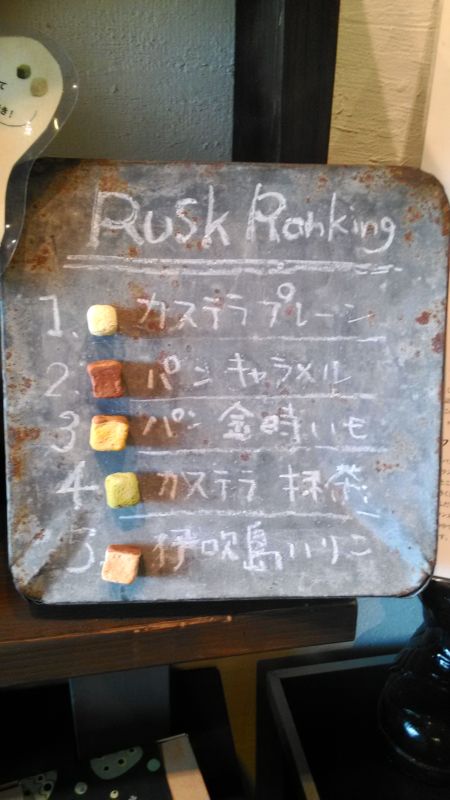 Rusk Ranking
1. カステラ プレーン
2 パン キャラメル
3 パン 金時いも
4 カステラ 抹茶
5. 伊吹島いりこ